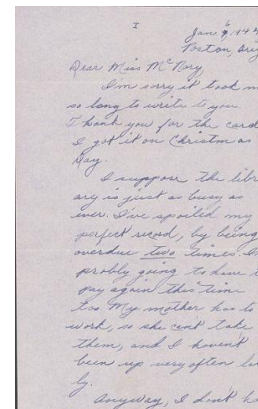 I
Jan 6, 194
Poston, Ariz
Dear Miss McNary,
I'm sorry it took m
so long to write to you
Thank you for the card
I got it on Christmas
Day.
I suppose the libr
ary is just as busy as
ever. I've spoiled my
perfect record, by being
overdue two times. I
probly going to have t
pay again this time
too My mother has to
work, so she can't take
them, and I haven't
been up very often la
ly.
Anyway, I don't ha